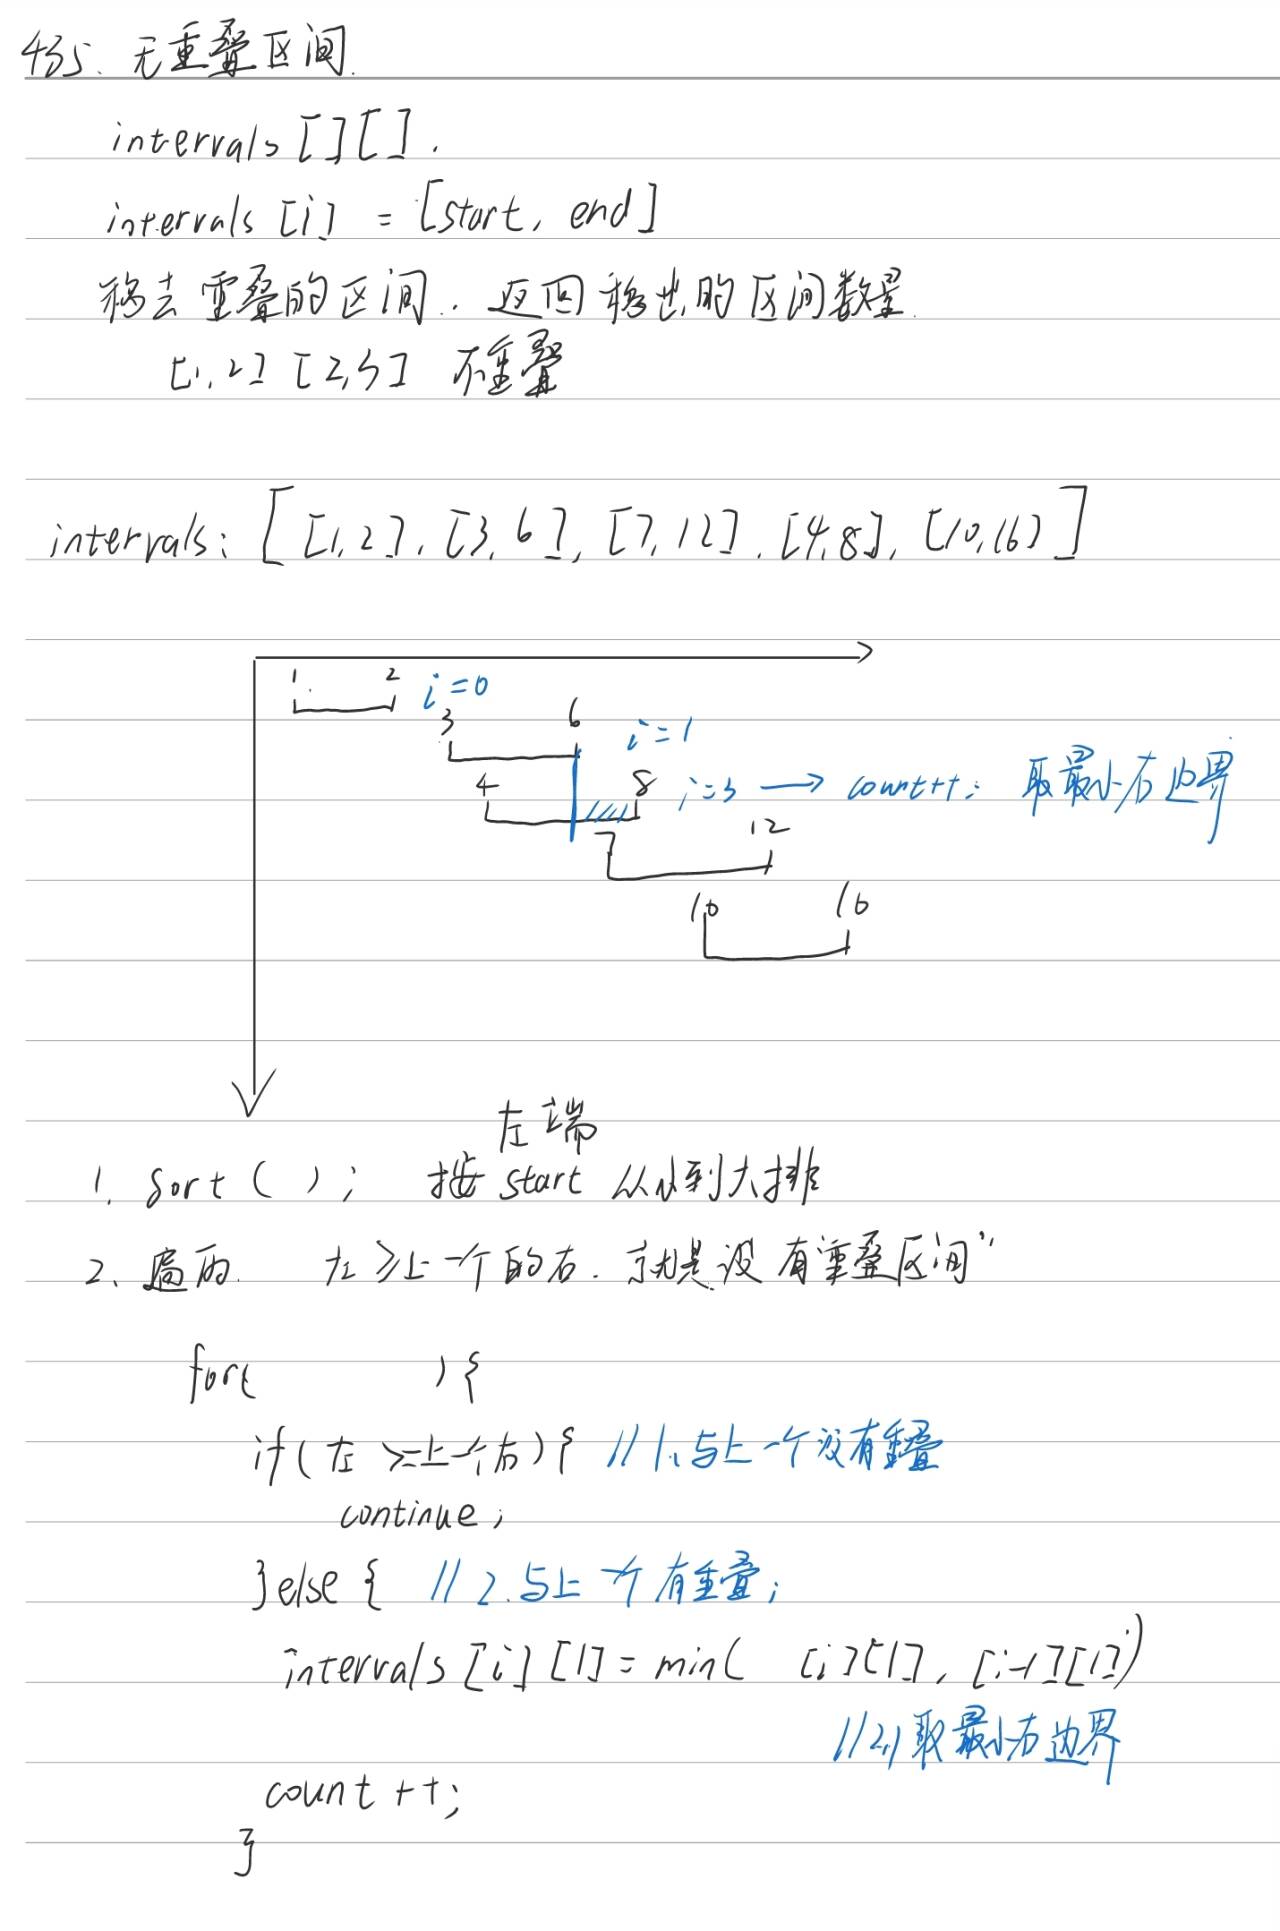 435. 无重叠区间.
intervals [][].
intervals [i] = [start, end]
移去 重叠的区间. 返回 移出的区间数量.
[1,2] [2,3] 不重叠
intervals: [ [1,2], [3,6], [7,12], [4,8], [10,16] ]
1 2 i=0
3 6 i=1
4 8 i=3 → count++; 取最小右边界
7 12
10 16
左端
1. Sort ( ); 按 start 从小到大排
2. 遍历. 左 ≥上一个的右. 就是没有重叠区间"
for( ){
if( 左 >=上一个右){ //1.与上一个没有重叠
continue;
}else { // 2.与上一个有重叠;
intervals [i] [1] = min( [i][1], [i-1][1])
//2.1取最小右边界
count ++;
}